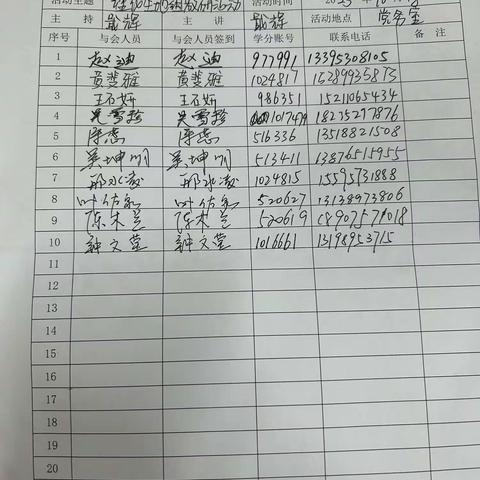 活动主题 活动时间
主 持 主 讲 活动地点 党务室
序号 与会人员 与会人员签到 学分账号 联系电话 备 注
1 赵迪 赵迪 977991 13395308105
2 黄斐雅 黄斐雅 1024817 15289935873
3 王石妍 王石妍 986351 15211065434
4 吴雪珍 吴雪珍 18275277876
5 陈蕊 陈蕊 516336 13518821508
6 吴坤川 吴坤川 513411 13876515955
7 邢水凌 邢水凌 1024815 15595731888
8 叶仿 叶仿 520627 13138973806
9 陈木兰 陈木兰 520619
10 钟文莹 钟文莹 1016661 13198953715
11
12
13
14
15
16
17
18
19
20